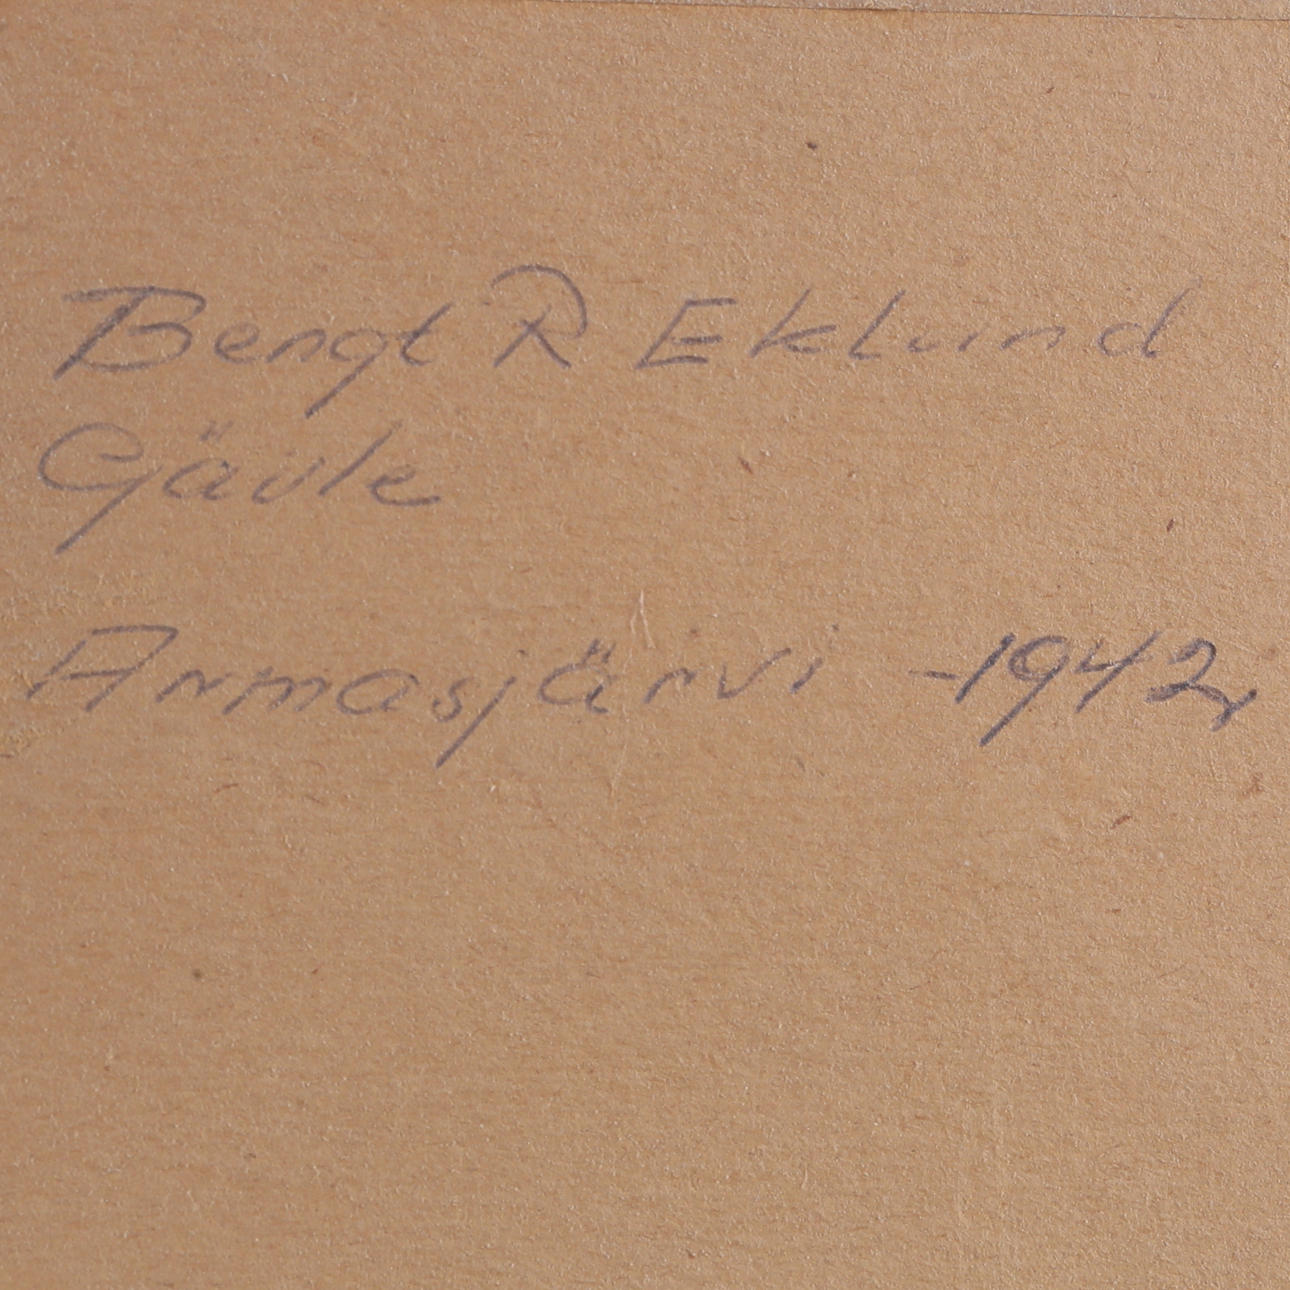 Bengt R Eklund
Gävle
Armasjärvi -1942